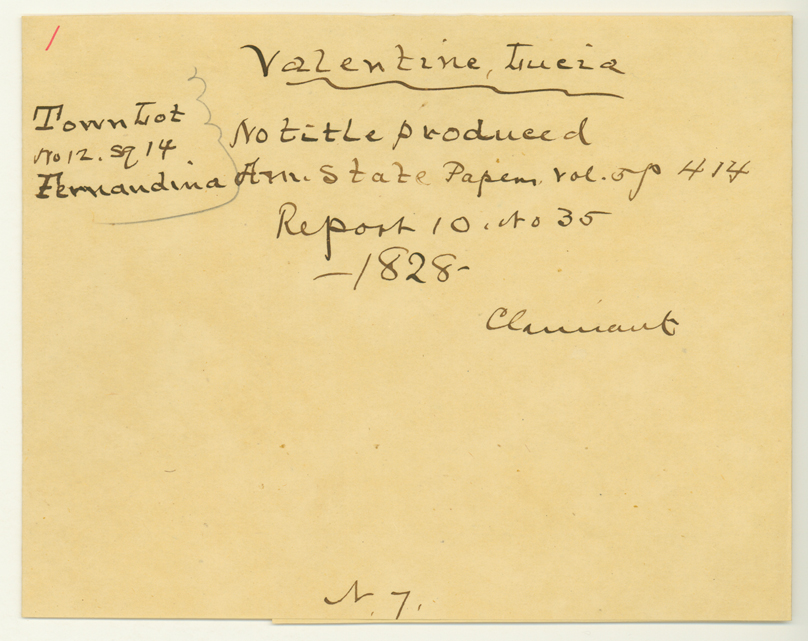 /
Valentine, Lucia
Town Lot
No 12. Sq 14
Fernandina
No title produced
Am. State Papers, vol. 5 p 414
Report 10. No 35
—1828-
Claimant
N. 7.